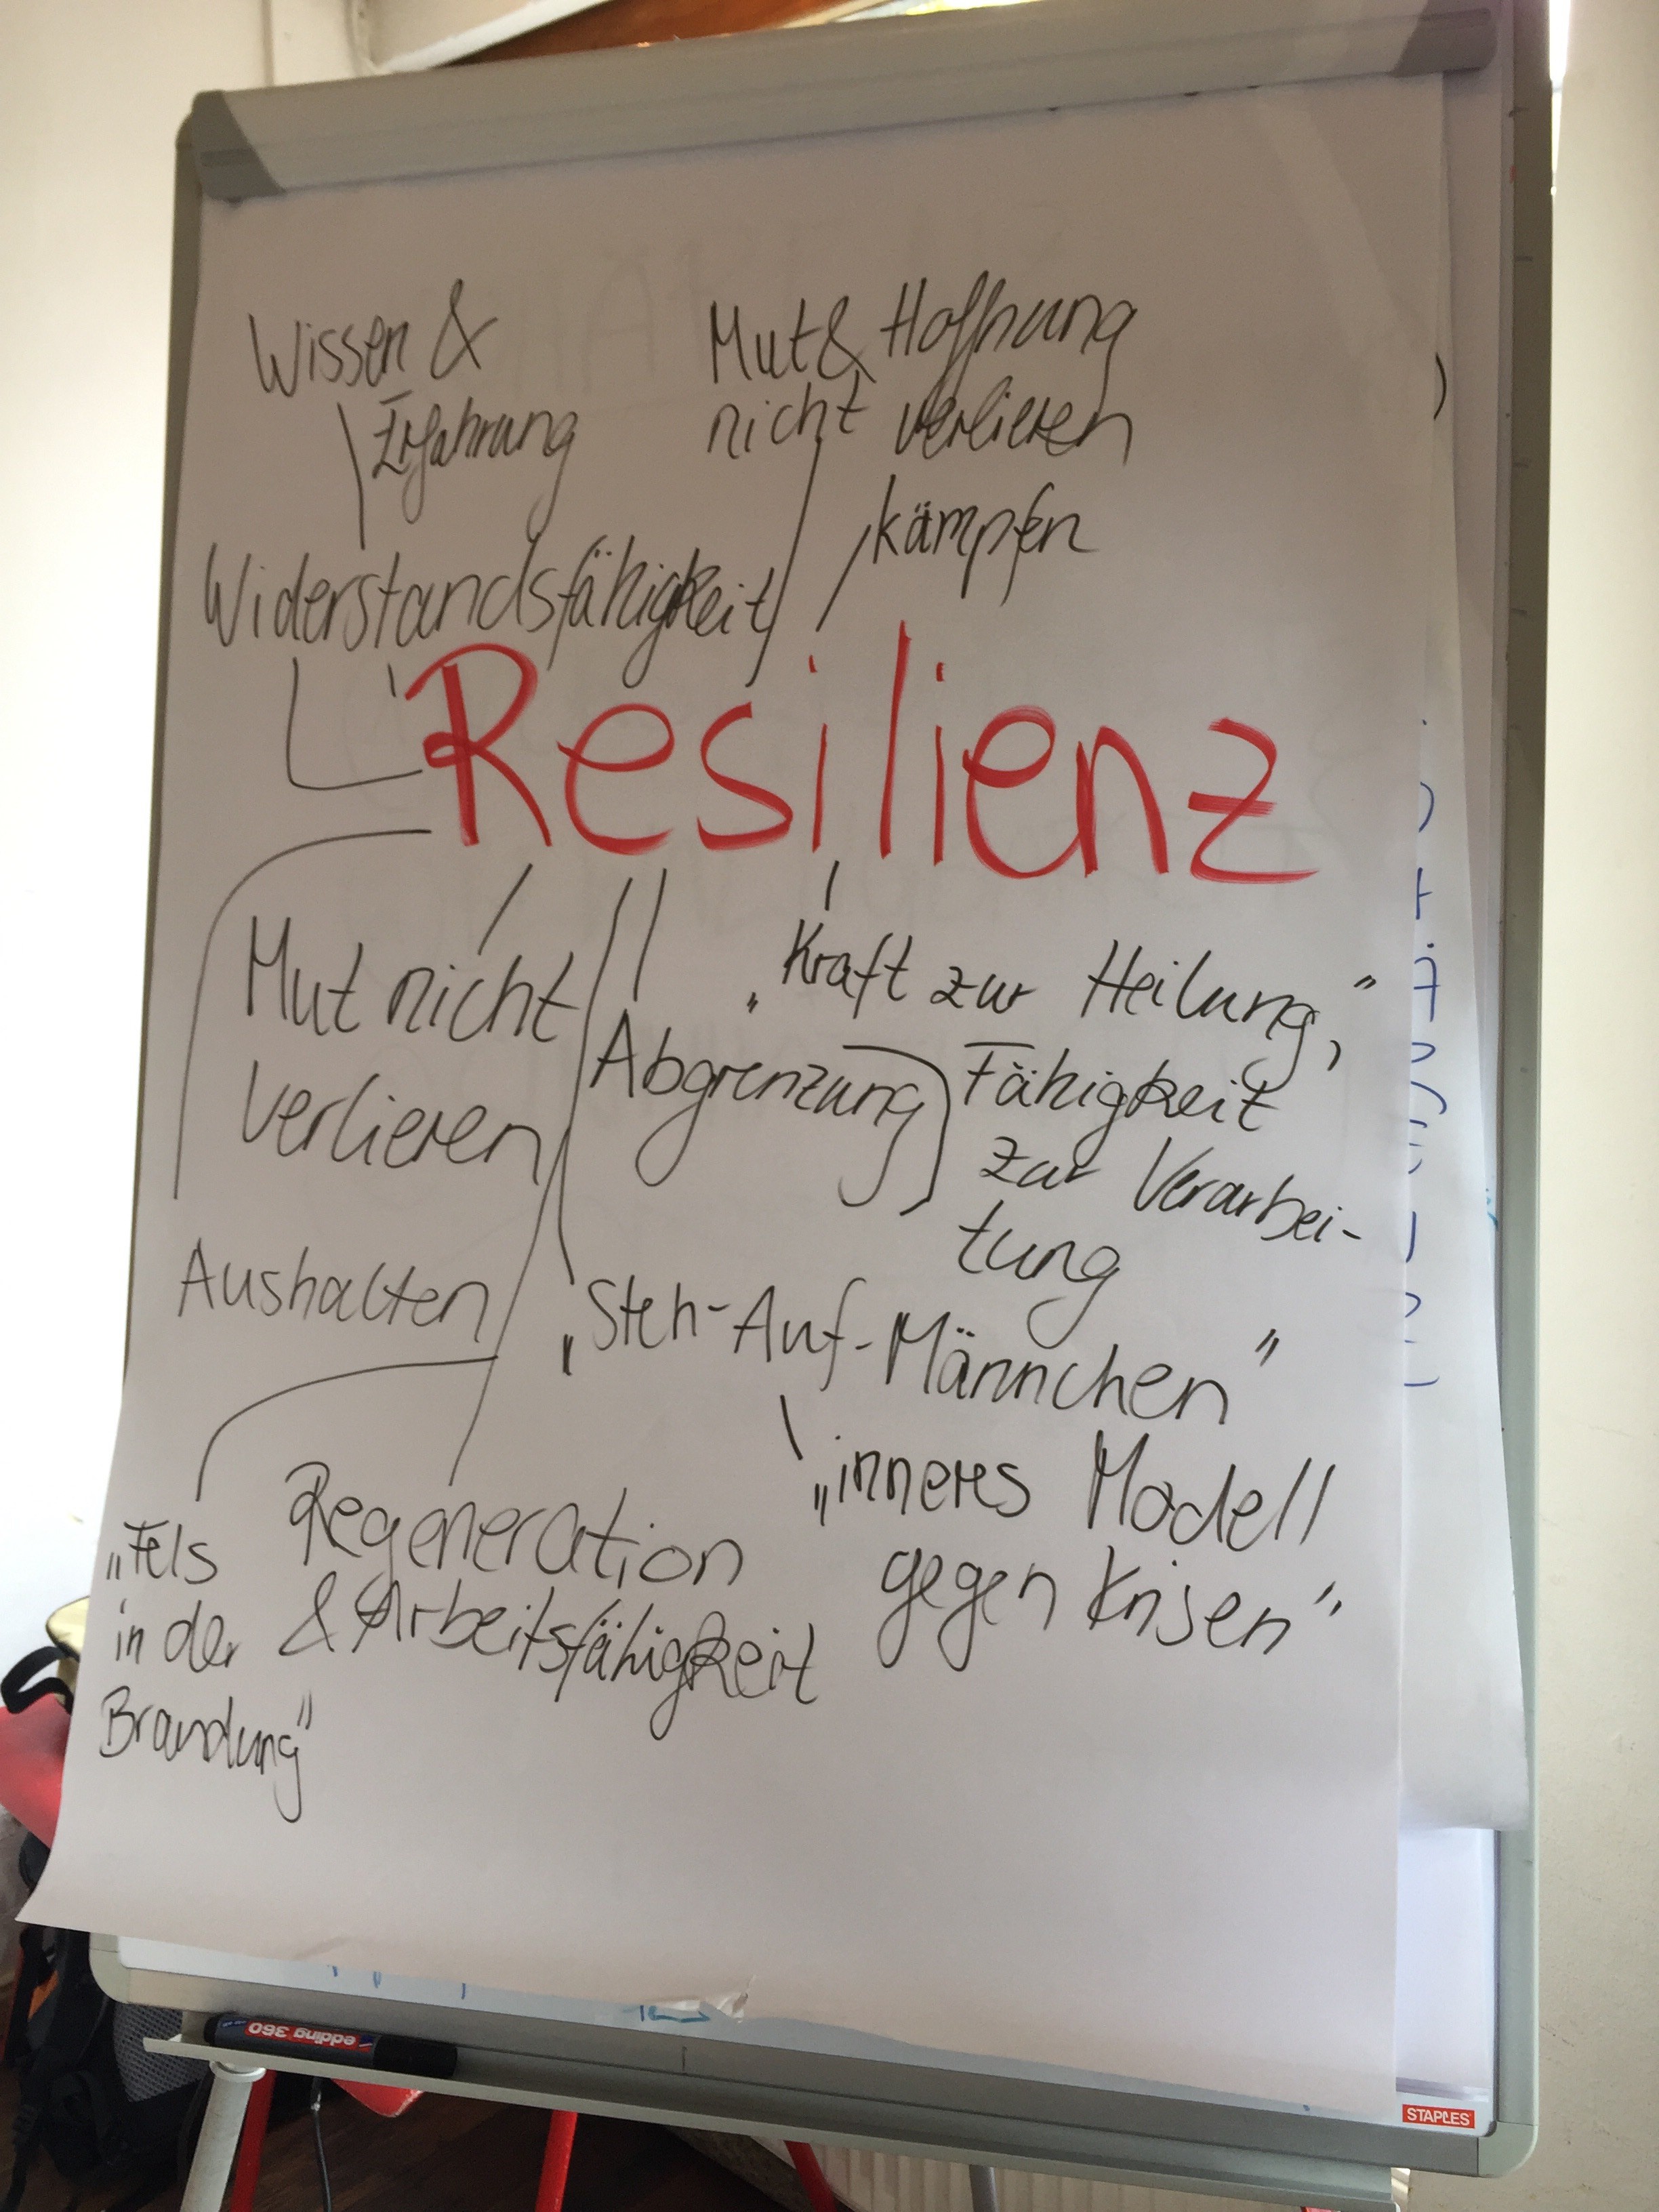 Wissen &
Erfahrung
Mut & Hoffnung
nicht verlieren
kämpfen
Widerstandsfähigkeit
Resilienz
Mut nicht
verlieren
Abgrenzung
„Kraft zur Heilung,"
Fähigkeit
zur Verarbei-
tung
Aushalten
„Steh-Auf-Männchen"
„inneres Modell
gegen Krisen"
Regeneration
& Arbeitsfähigkeit
„Fels
in der
Brandung"
edding 360
STAPLES